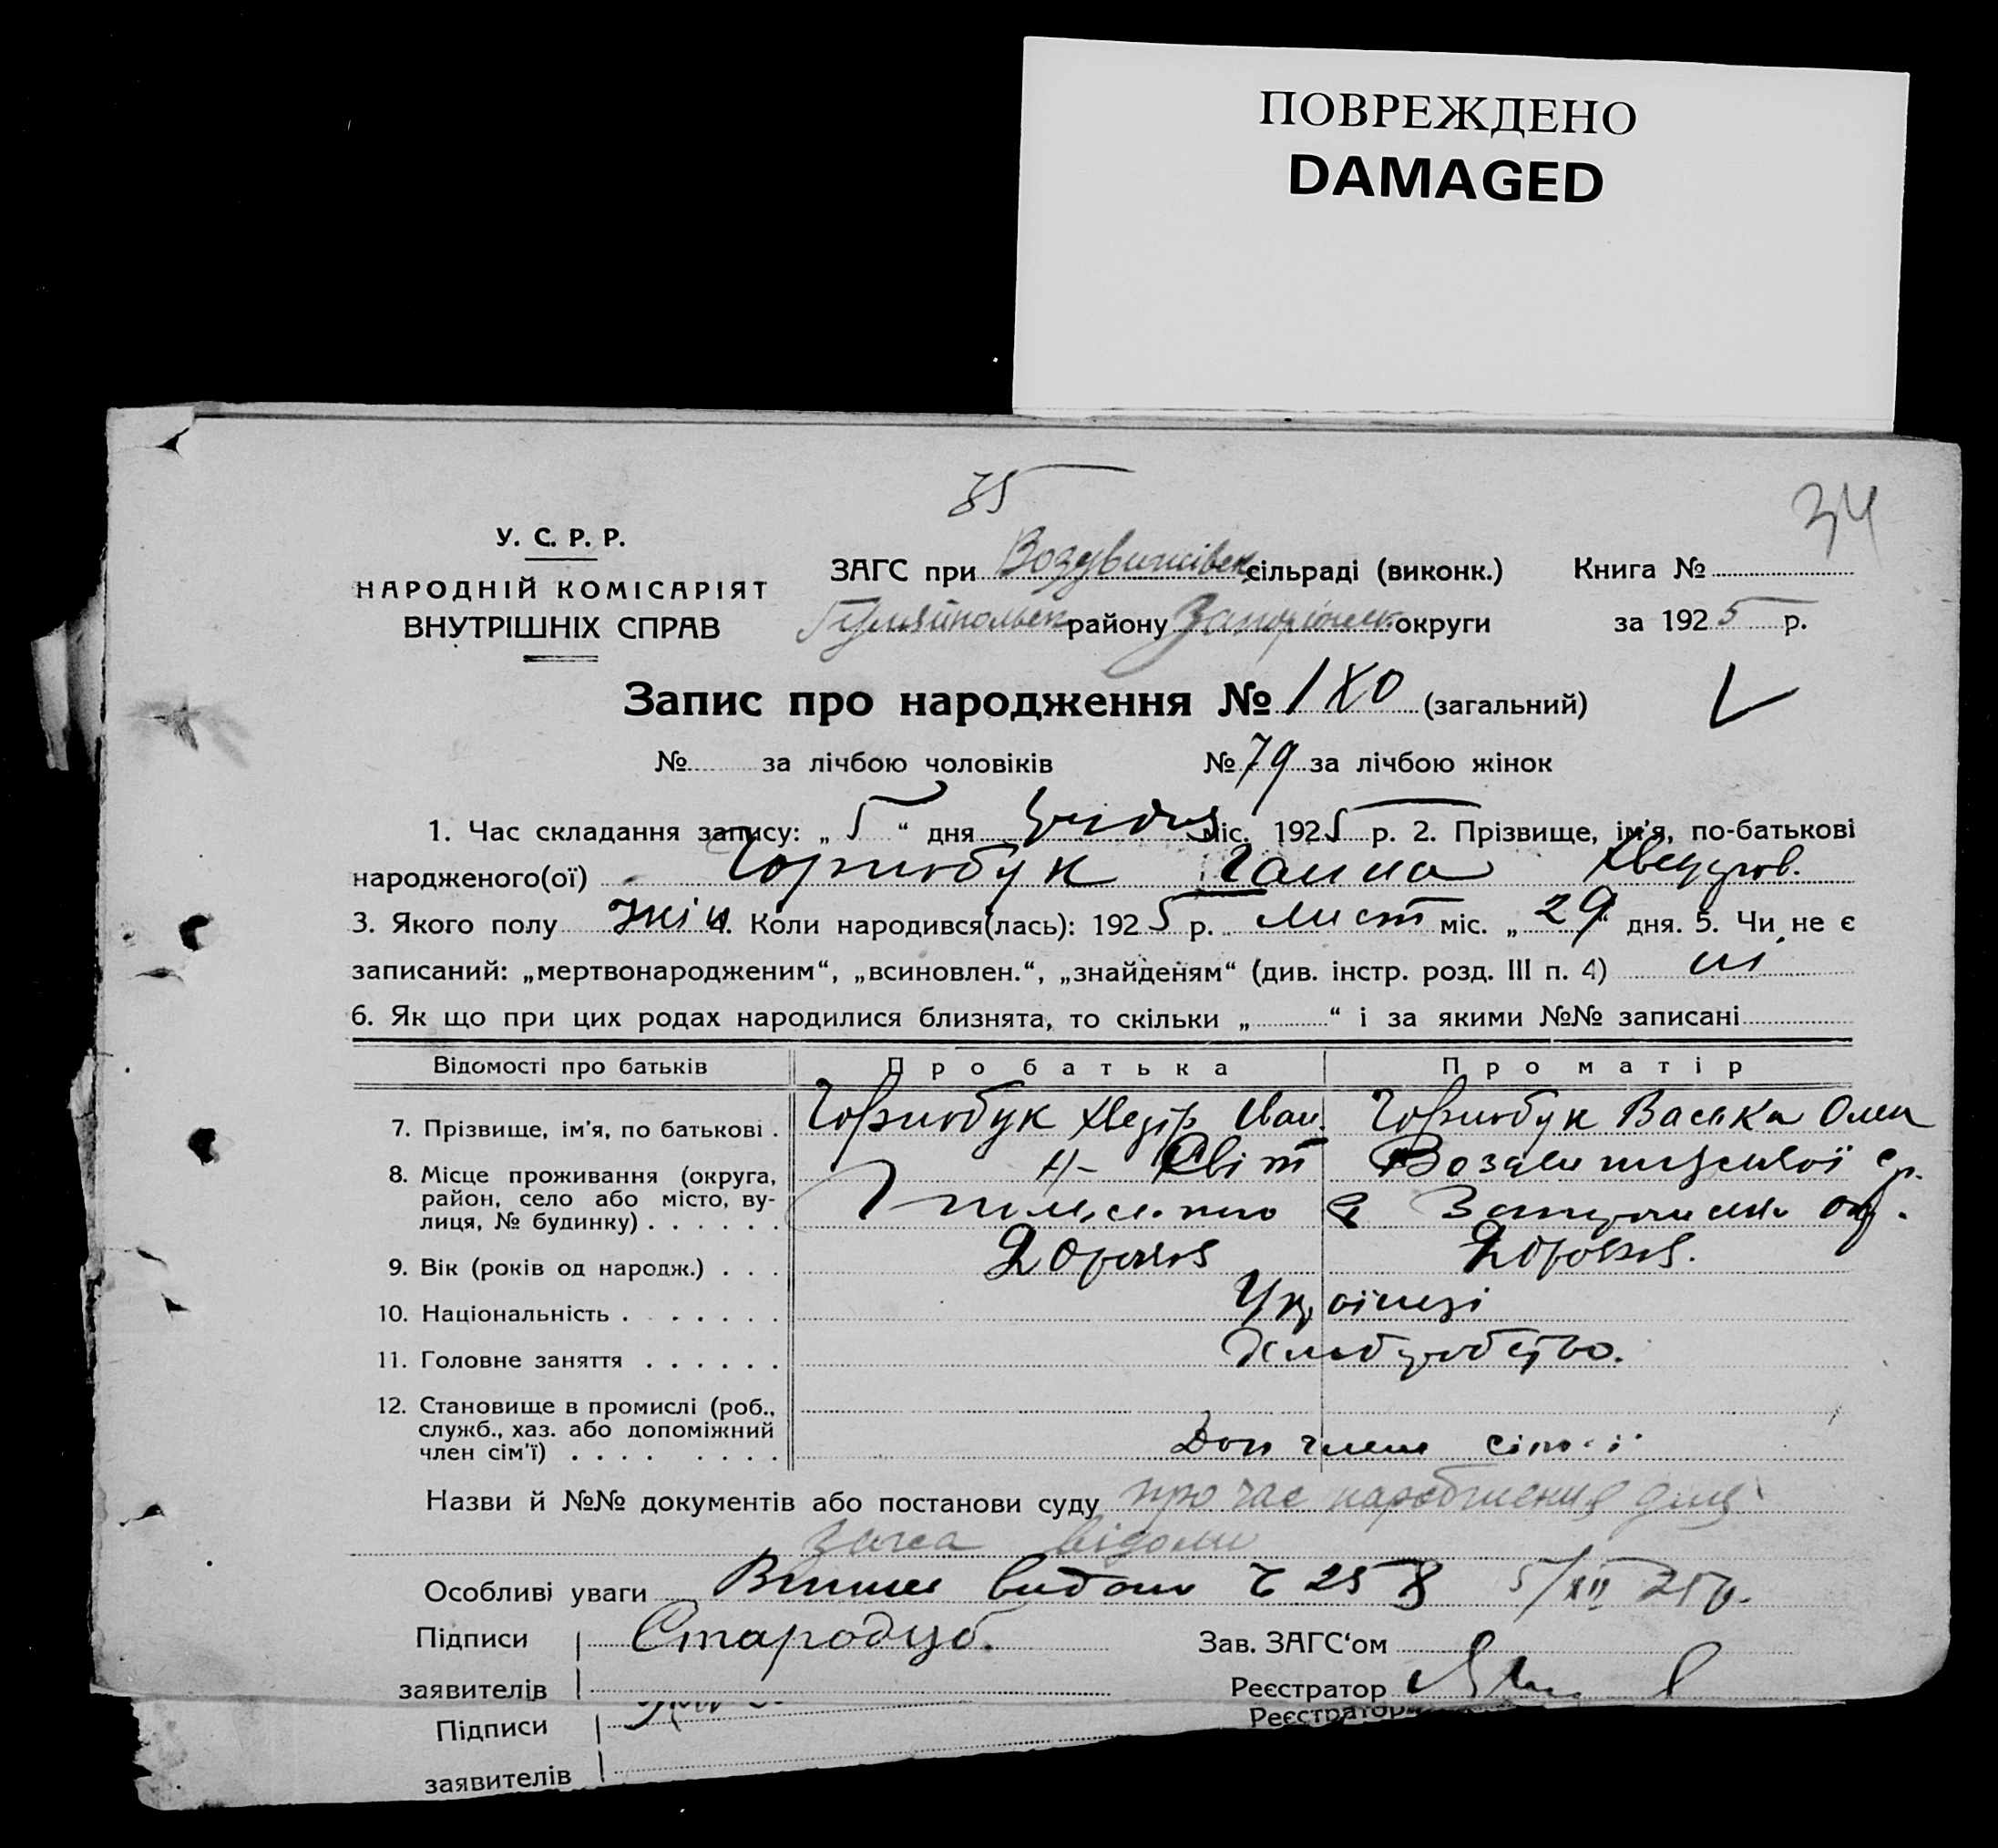 ПОВРЕЖДЕНО
DAMAGED
35
34
У. С. Р. Р.
НАРОДНІЙ КОМІСАРІЯТ
ВНУТРІШНІХ СПРАВ
ЗАГС при Воздвижівськ сільраді (виконк.) Книга №
Гуляйпольськ району Запоріжськ округи за 1925 р.
Запис про народження № 180 (загальний)
№ за лічбою чоловіків № 79 за лічбою жінок
1. Час складання запису: „ 5 “ дня Грудня міс. 1925 р. 2. Прізвище, ім'я, по-батькові
народженого(ої) Чорнобук Ганна Хведоров.
3. Якого полу жін 4. Коли народився(лась): 1925 р. лист міс. „ 29 “ дня. 5. Чи не є
записаний: „мертвонародженим“, „всиновлен.“, „знайденям“ (див. інстр. розд. III п. 4) ні
6. Як що при цих родах народилися близнята, то скільки „ “ і за якими №№ записані
Відомості про батьків Про батька Про матір
7. Прізвище, ім'я, по батькові . Чорнобук Хведір Иван. Чорнобук Васька Олек
8. Місце проживання (округа, район, село або місто, вулиця, № будинку) . . . . . . Н- Світ
9. Вік (років од народж.) . . . 20 років 20 років.
10. Національність . . . . . . . Українці
11. Головне заняття . . . . . . Хліборобство.
12. Становище в промислі (роб.,
служб., хаз. або допоміжний
член сім'ї) . . . . . . . . Доп члени сім'ї
Назви й №№ документів або постанови суду про час народження
загса відоми
Особливі уваги видано 258 5/XII 25 р.
Підписи Стародуб. Зав. ЗАГС‘ом
заявителів Реєстратор
Підписи Реєстратор
заявителів